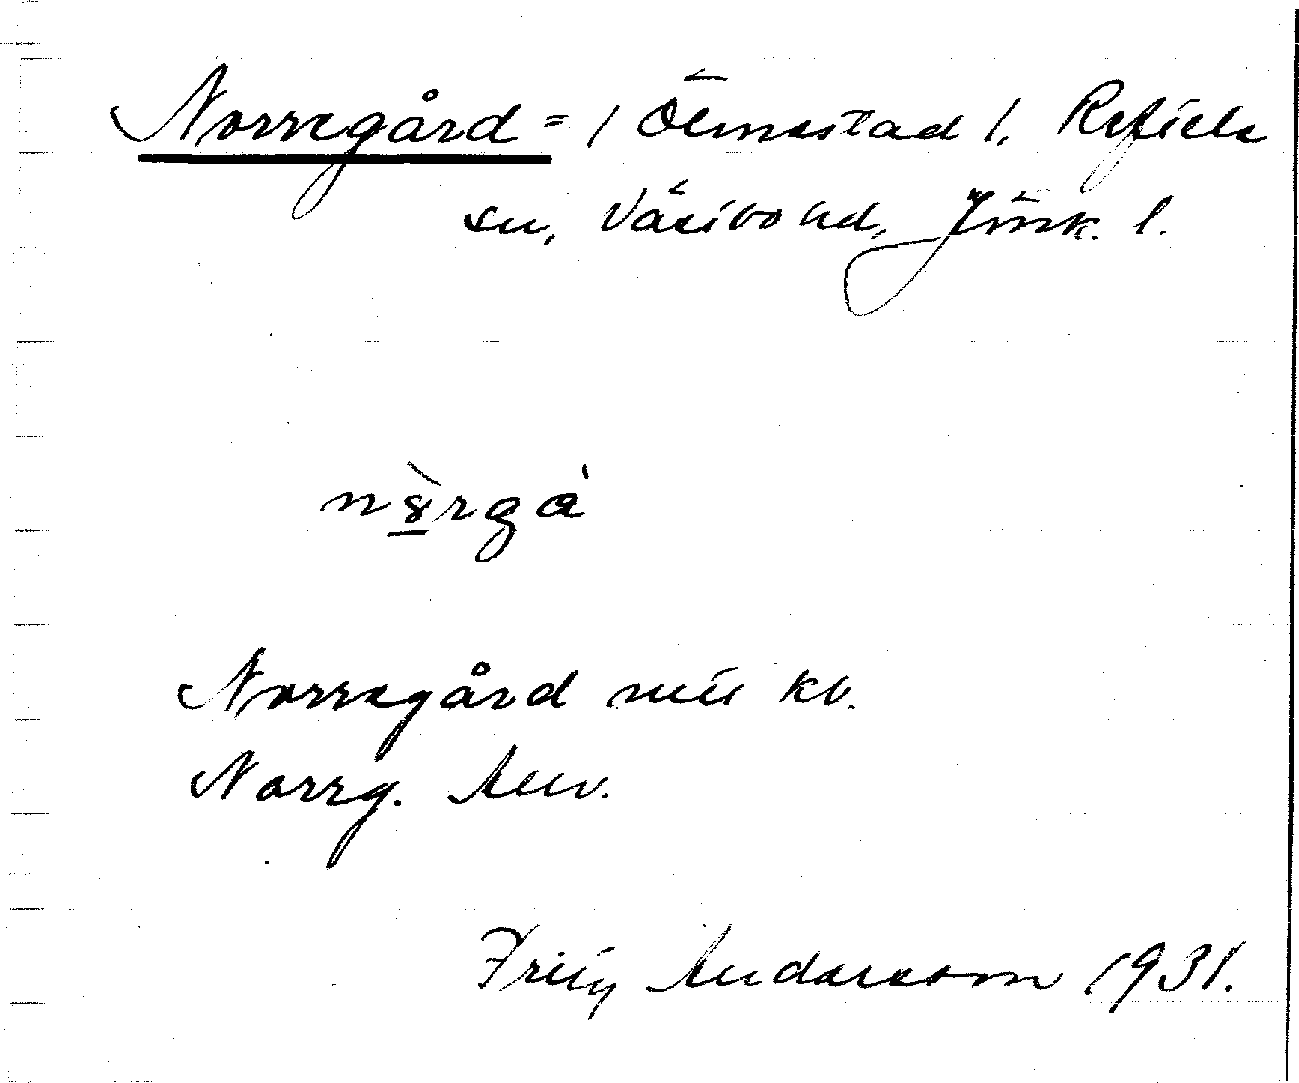 Norregård = / Ölmestad /, Reftele
sn, Västbo hd, Jönk. l.
n8rgå
Norregård mtl kb.
Norrg. Anv.
Frity Andersson 1931.